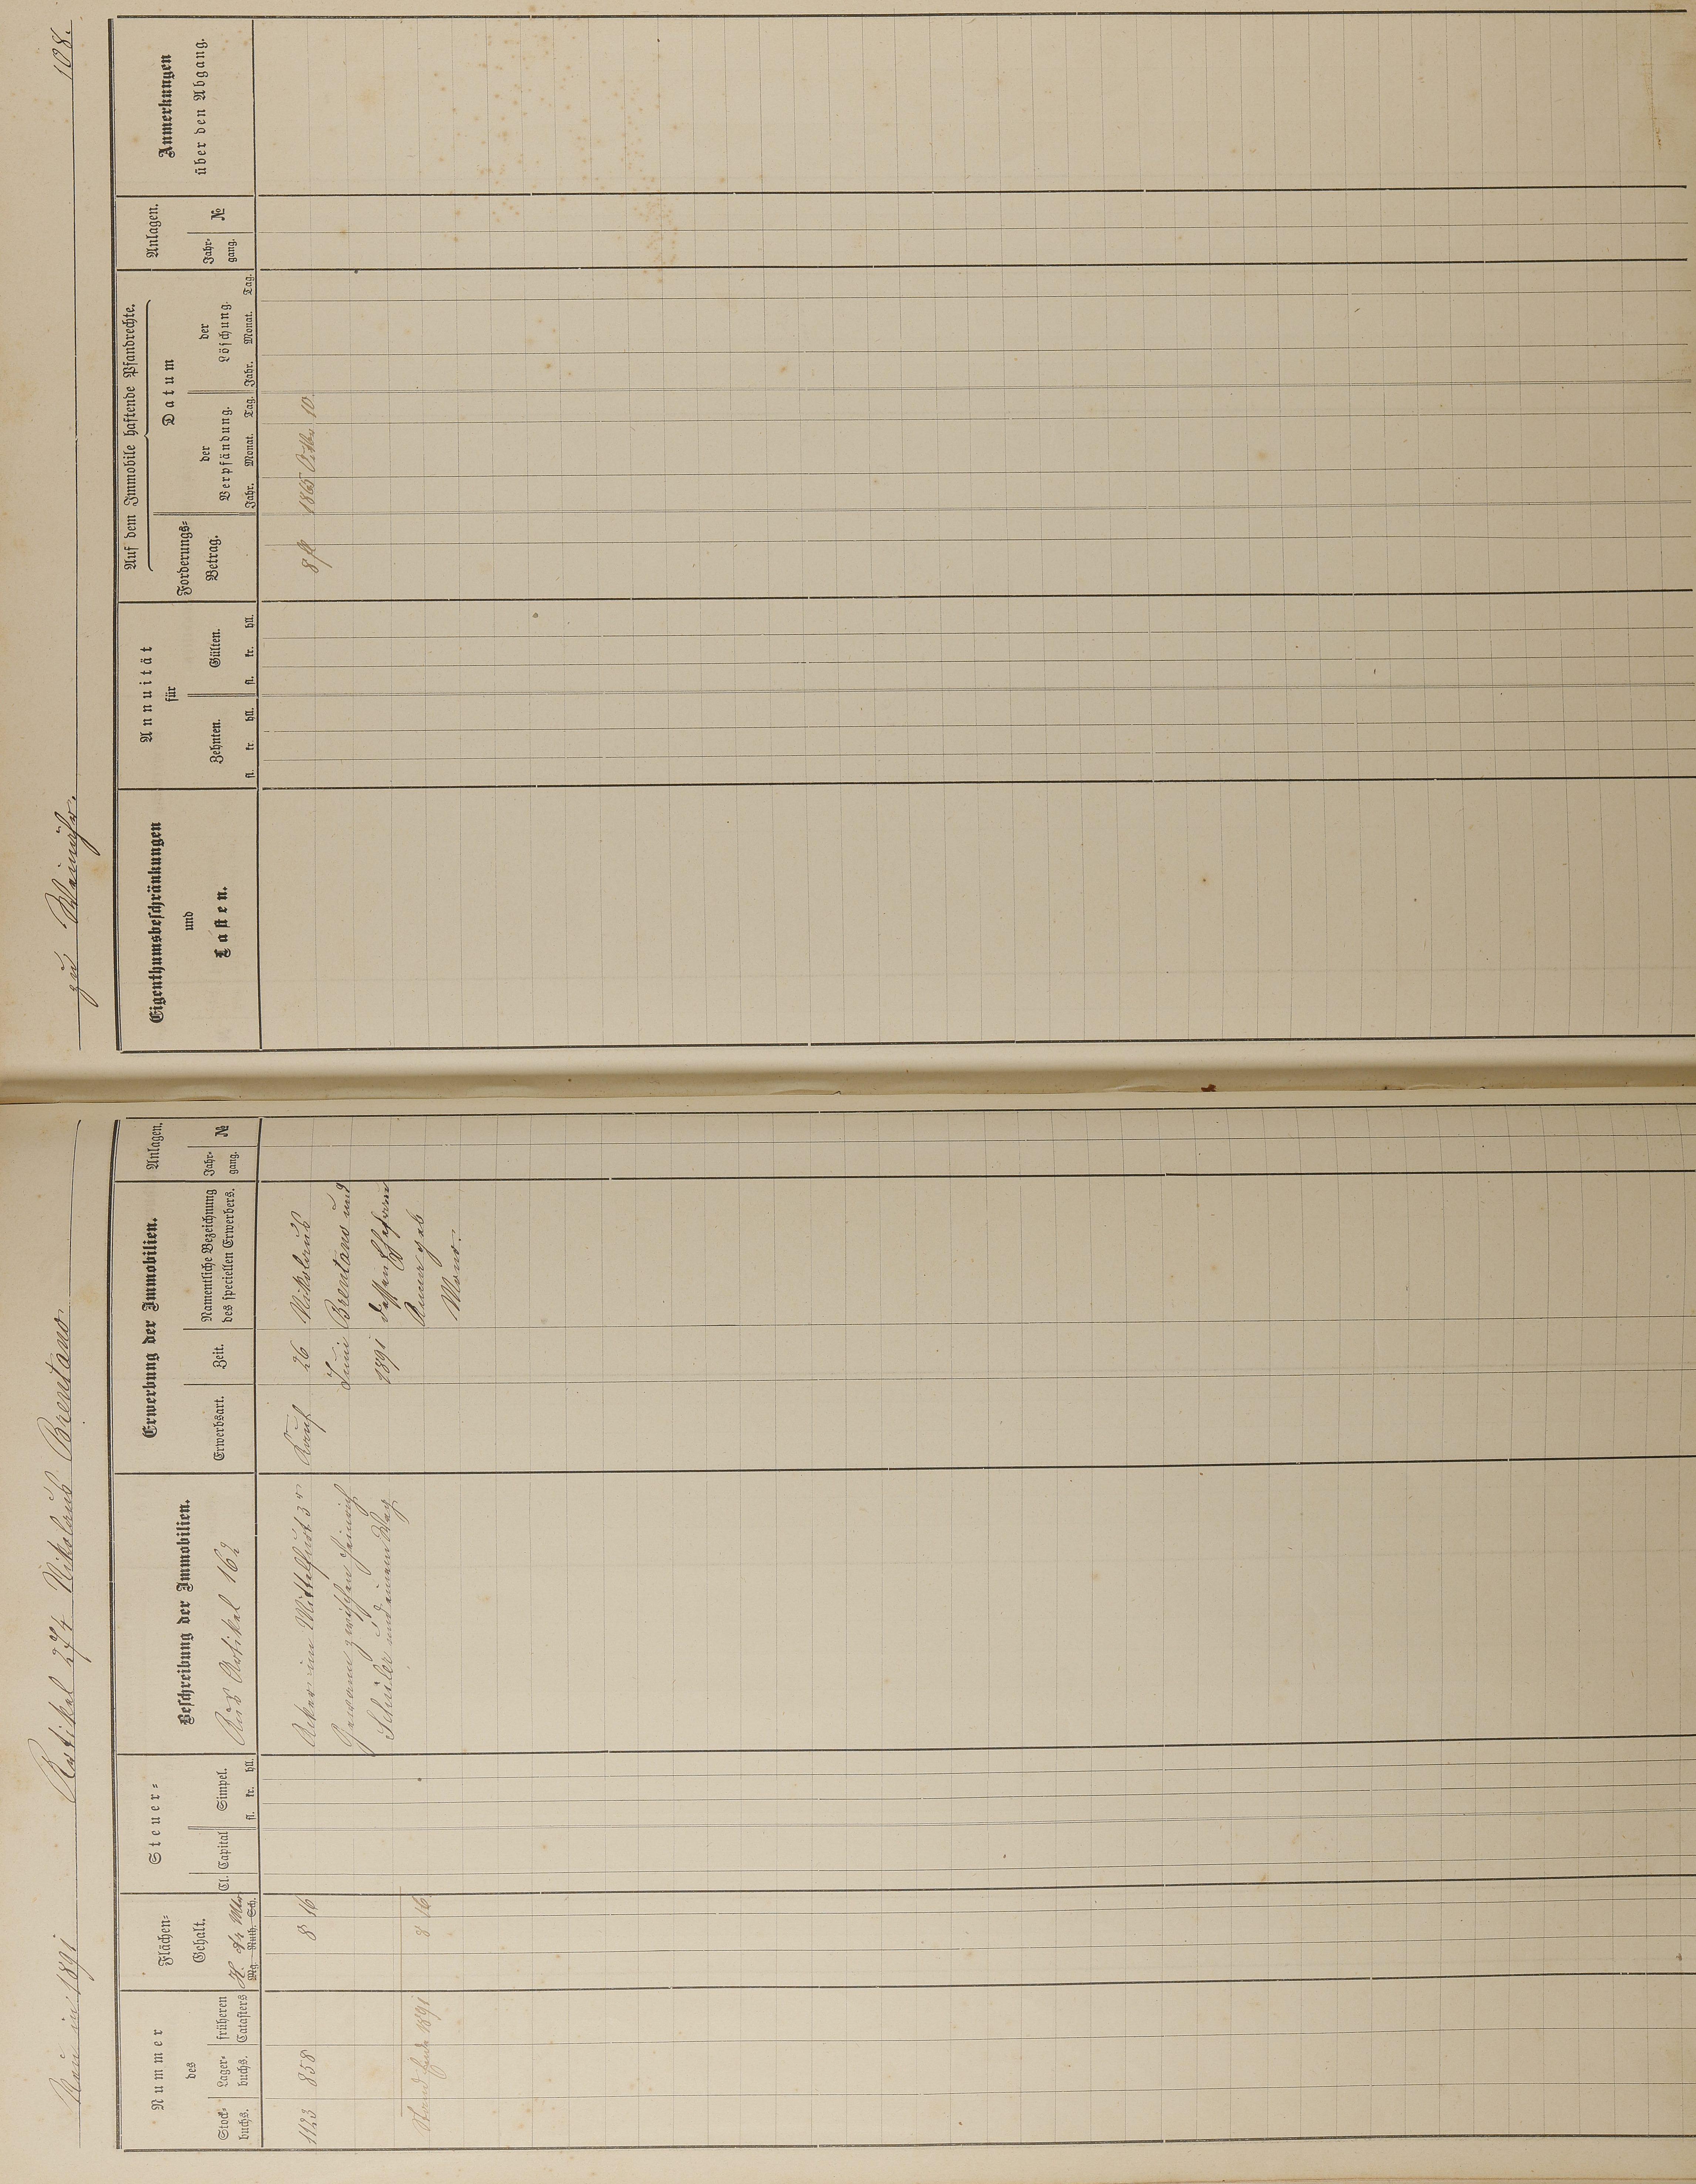 Neu in 1891 Artikel 274 Nikolaus Brentano
Nummer
des
Stock-
buchs.
Lager-
buchs.
früheren
Catasters
Flächen-
Gehalt.
H. Ar Mtr
Mg. Ruth. Sch.
Steuer-
Cl.
Capital
Simpel.
fl. kr. hll.
Beschreibung der Immobilien.
Aus Artikel 162
Erwerbung der Immobilien.
Erwerbsart.
Zeit.
Namentliche Bezeichnung
des speciellen Erwerbers.
Anlagen.
Jahr-
gang.
№
1123 858 8 16 Acker im Mittelfeld 3r Kauf 26 Nikolaus
Gewann zwischen Heinrich Juni Brentano und
Schuler und einem Weg 1891 dessen Ehefrau
Stand Ende 1891 8 16 geb
zu Weinähr. 108.
Eigenthumsbeschränkungen
und
Lasten.
Annuität
für
Zehnten.
fl. kr. hll.
Gülten.
fl. kr. hll.
Auf dem Immobile haftende Pfandrechte.
Forderungs-
Betrag.
Datum
der
Verpfändung.
Jahr. Monat. Tag.
der
Löschung.
Jahr. Monat. Tag.
Anlagen.
Jahr-
gang.
№
Anmerkungen
über den Abgang.
8 fl 1865 Octbr 10.